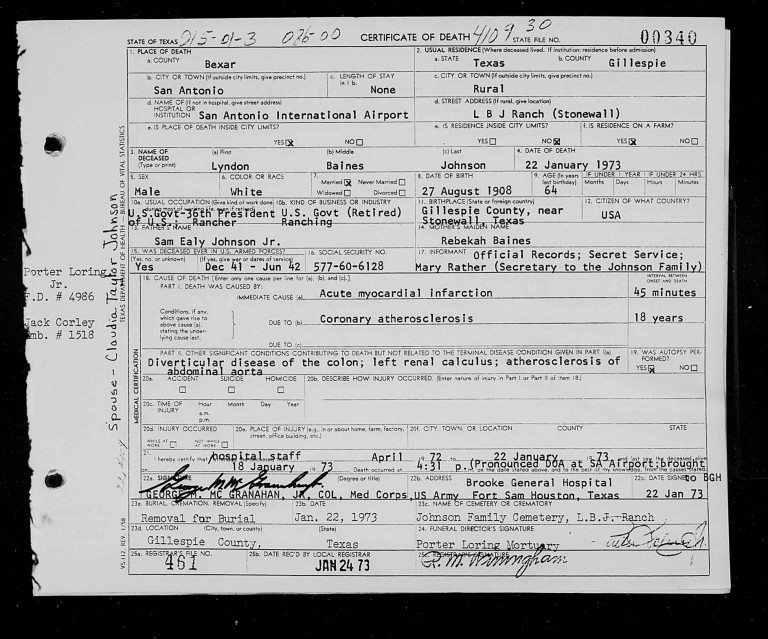 STATE OF TEXAS 015-01-3 086-00 CERTIFICATE OF DEATH 4109 30 STATE FILE NO. 00340
1. PLACE OF DEATH 2. USUAL RESIDENCE (Where deceased lived. If institution: residence before admission)
a. COUNTY Bexar a. STATE Texas b. COUNTY Gillespie
b. CITY OR TOWN (If outside city limits, give precinct no.) c. LENGTH OF STAY in 1 b. c. CITY OR TOWN (If outside city limits, give precinct no.)
San Antonio None Rural
d. NAME OF (If not in hospital, give street address) HOSPITAL OR INSTITUTION San Antonio International Airport d. STREET ADDRESS (If rural, give location) L B J Ranch (Stonewall)
e. IS PLACE OF DEATH INSIDE CITY LIMITS? e. IS RESIDENCE INSIDE CITY LIMITS? f. IS RESIDENCE ON A FARM?
YES X NO YES NO X YES X NO
3. NAME OF DECEASED (Type or print) (a) First (b) Middle (c) Last 4. DATE OF DEATH
Lyndon Baines Johnson 22 January 1973
5. SEX 6. COLOR OR RACE 7. Married X Never Married Widowed Divorced 8. DATE OF BIRTH 9. AGE (In years last birthday) IF UNDER 1 YEAR Months Days IF UNDER 24 HRS. Hours Minutes
Male White 27 August 1908 64
10a. USUAL OCCUPATION (Give kind of work done 10b. KIND OF BUSINESS OR INDUSTRY 11. BIRTHPLACE (State or foreign country) 12. CITIZEN OF WHAT COUNTRY?
U.S.Govt-36th President U.S. Govt (Retired) Gillespie County, near USA
of U.S.; Rancher Ranching Stonewall, Texas
13. FATHER'S NAME 14. MOTHER'S MAIDEN NAME
Sam Ealy Johnson Jr. Rebekah Baines
15. WAS DECEASED EVER IN U.S. ARMED FORCES? 16. SOCIAL SECURITY NO. 17. INFORMANT Official Records; Secret Service;
(Yes, no, or unknown) (If yes, give war or dates of service)
Yes Dec 41 - Jun 42 577-60-6128 Mary Rather (Secretary to the Johnson Family)
18. CAUSE OF DEATH [Enter only one cause per line for (a), (b), and (c).] INTERVAL BETWEEN ONSET AND DEATH
PART I. DEATH WAS CAUSED BY:
IMMEDIATE CAUSE (a) Acute myocardial infarction 45 minutes
Conditions, if any, which gave rise to above cause (a), stating the underlying cause last.
DUE TO (b) Coronary atherosclerosis 18 years
DUE TO (c)
PART II. OTHER SIGNIFICANT CONDITIONS CONTRIBUTING TO DEATH BUT NOT RELATED TO THE TERMINAL DISEASE CONDITION GIVEN IN PART I(a) 19. WAS AUTOPSY PERFORMED?
Diverticular disease of the colon; left renal calculus; atherosclerosis of YES X NO
abdominal aorta
20a. ACCIDENT SUICIDE HOMICIDE 20b. DESCRIBE HOW INJURY OCCURRED. (Enter nature of injury in Part I or Part II of item 18.)
20c. TIME OF INJURY Hour Month Day Year
a.m.
p.m.
20d. INJURY OCCURRED WHILE AT WORK NOT WHILE AT WORK 20e. PLACE OF INJURY (e.g., in or about home, farm, factory, street, office building, etc.) 20f. CITY, TOWN, OR LOCATION COUNTY STATE
21. I hereby certify that hospital staff April 19 72 to 22 January 19 73 and last saw the deceased alive
18 January 19 73 Death occurred at 4:31 p. (Pronounced DOA at SA Airport;brought
to BGH
22a. SIGNATURE (Degree or title) 22b. ADDRESS Brooke General Hospital 22c. DATE SIGNED
GEORGE M. MC GRANAHAN, JR, COL, Med Corps US Army Fort Sam Houston, Texas 22 Jan 73
23a. BURIAL, CREMATION, REMOVAL (Specify) 23b. DATE 23c. NAME OF CEMETERY OR CREMATORY
Removal for Burial Jan. 22, 1973 Johnson Family Cemetery, L.B.J. Ranch
23d. LOCATION (City, town, or county) (State) 24. FUNERAL DIRECTOR'S SIGNATURE
Gillespie County, Texas Porter Loring Mortuary
25a. REGISTRAR'S FILE NO. 25b. DATE REC'D BY LOCAL REGISTRAR 25c. REGISTRAR'S SIGNATURE
461 JAN 24 73
Porter Loring
Jr.
F.D. # 4986
Jack Corley
Emb. # 1518
Spouse - Claudia Taylor Johnson
TEXAS DEPARTMENT OF HEALTH - BUREAU OF VITAL STATISTICS
MEDICAL CERTIFICATION
VS-112, REV. 1/58